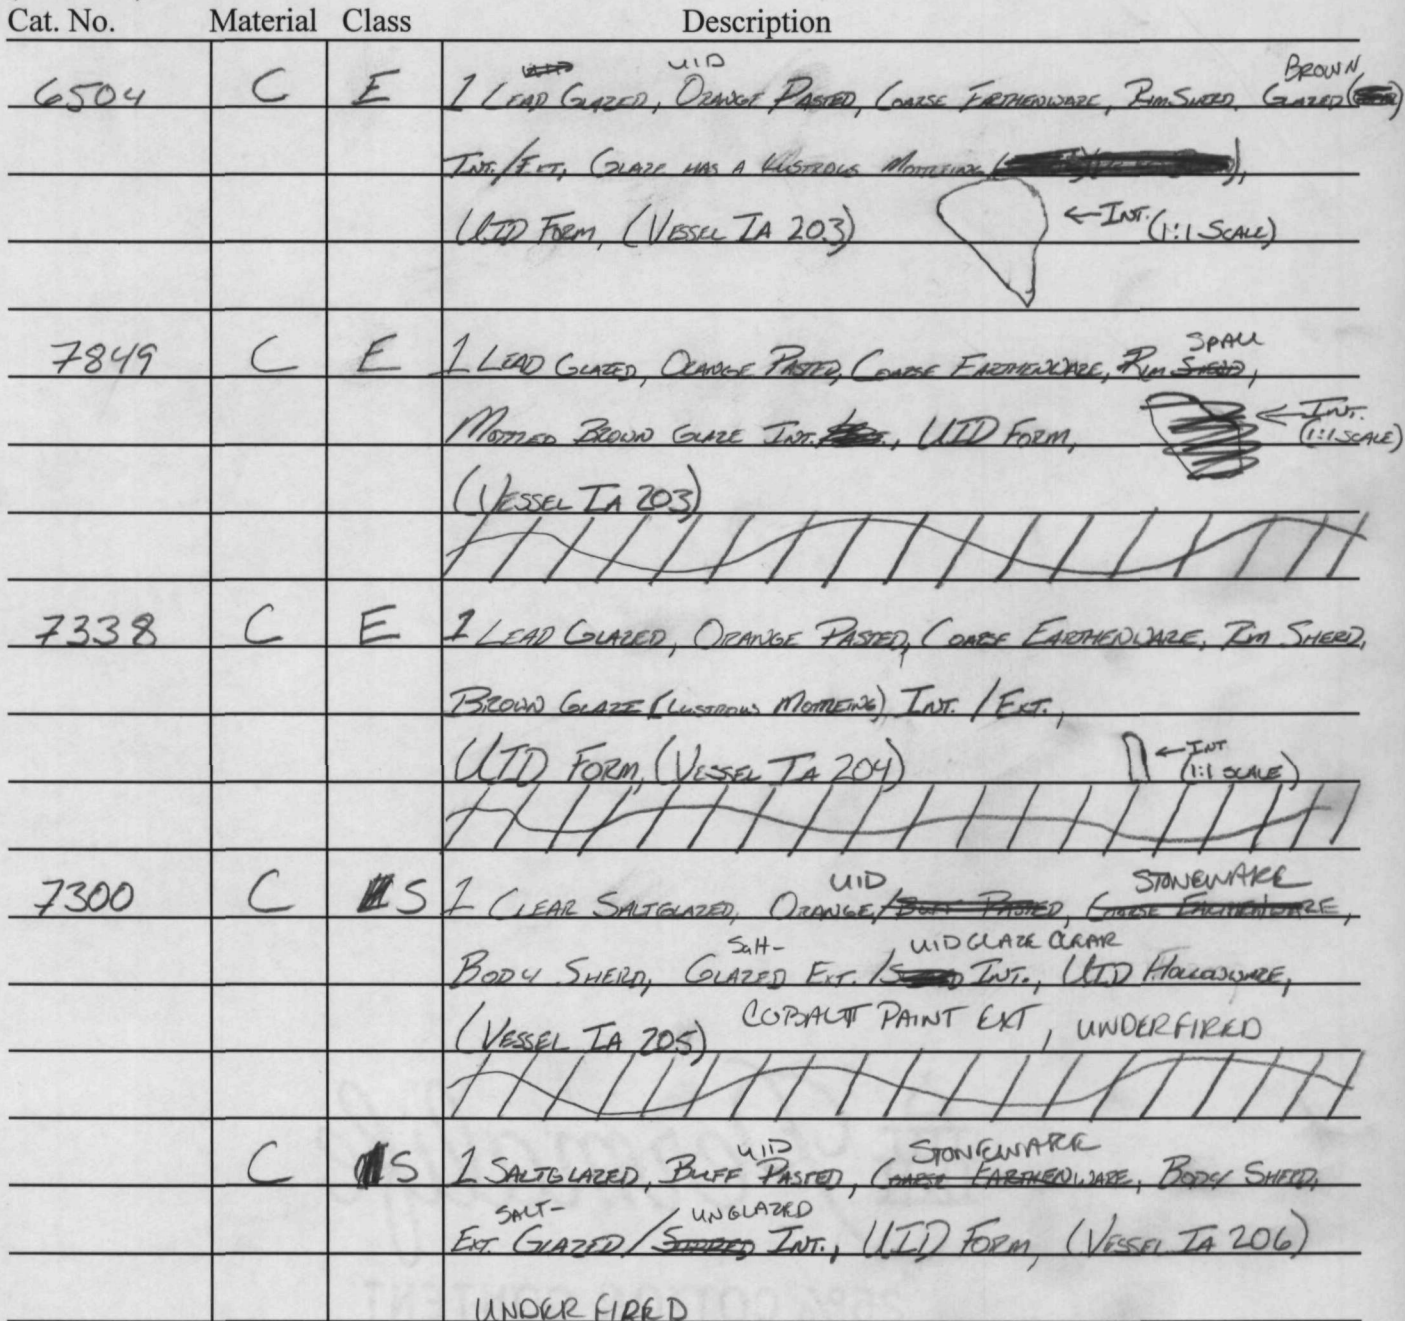 Cat. No. Material Class Description
UID BROWN
6504 C E 1 LEAD GLAZED, ORANGE PASTED, COARSE EARTHENWARE, RIM SHERD, GLAZED
INT./EXT., GLAZE HAS A LUSTROUS MOTTLEING
UID FORM, (VESSEL IA 203) ←INT. (1:1 SCALE)
SPALL
7849 C E 1 LEAD GLAZED, ORANGE PASTED, COARSE EARTHENWARE, RIM SHERD,
MOTTLED BROWN GLAZE INT., UID FORM, ←INT. (1:1 SCALE)
(VESSEL IA 203)
7338 C E 1 LEAD GLAZED, ORANGE PASTED, COARSE EARTHENWARE, RIM SHERD,
BROWN GLAZE (LUSTROUS MOTTLEING) INT. / EXT.,
UID FORM, (VESSEL IA 204) ←INT (1:1 SCALE)
UID STONEWARE
7300 C S 1 CLEAR SALTGLAZED, ORANGE/BUFF PASTED, COARSE EARTHENWARE,
Salt- UID GLAZE CLEAR
BODY SHERD, GLAZED EXT. / INT., UID HOLLOWWARE,
(VESSEL IA 205) COBALT PAINT EXT, UNDERFIRED
UID STONEWARE
C S 1 SALTGLAZED, BUFF PASTED, COARSE EARTHENWARE, BODY SHERD,
SALT- UNGLAZED
EXT. GLAZED / INT., UID FORM, (VESSEL IA 206)
UNDER FIRED
25% COTTON CONTENT